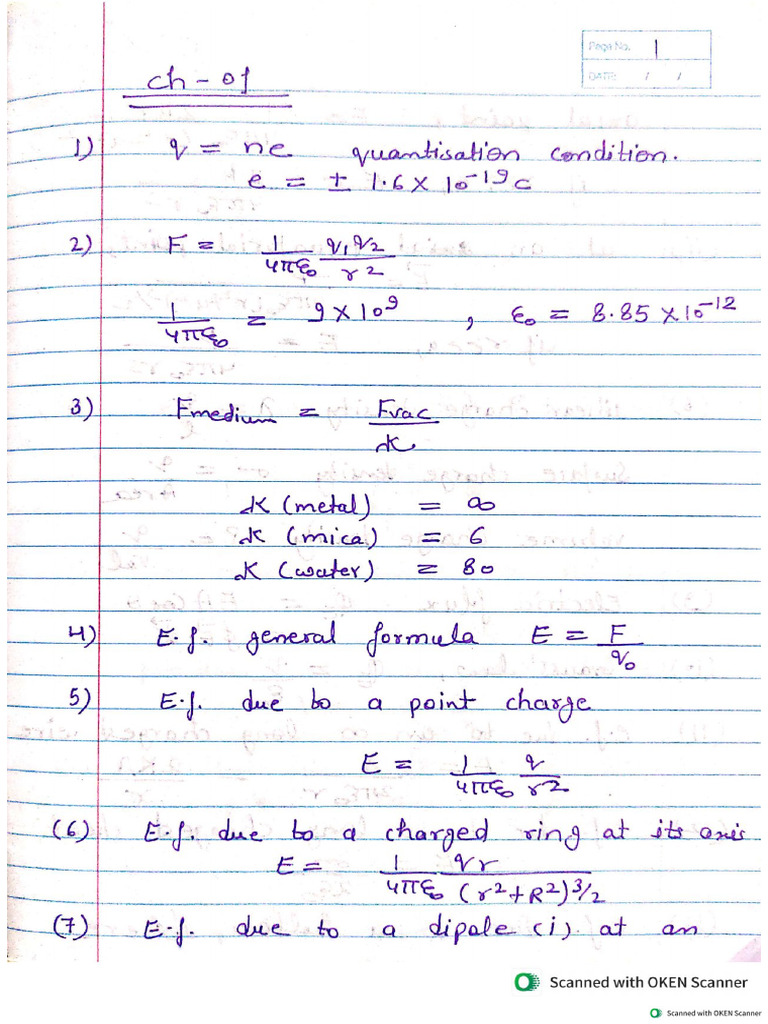 Page No. 1
DATE: / /
Ch - 01
1) q = ne quantisation condition.
e = ± 1.6 × 10⁻¹⁹c
2) F = 1/4πε₀ q₁q₂/r²
1/4πε₀ = 9 × 10⁹ , ε₀ = 8.85 × 10⁻¹²
3) Fmedium = Fvac/K
K (metal) = ∞
K (mica) = 6
K (water) = 80
4) E.f. general formula E = F/q₀
5) E.f. due to a point charge
E = 1/4πε₀ q/r²
(6) E.f. due to a charged ring at its axis
E = 1/4πε₀ qr/(r²+R²)³/²
(7) E.f. due to a dipole (i) at an
Scanned with OKEN Scanner
Scanned with OKEN Scanner